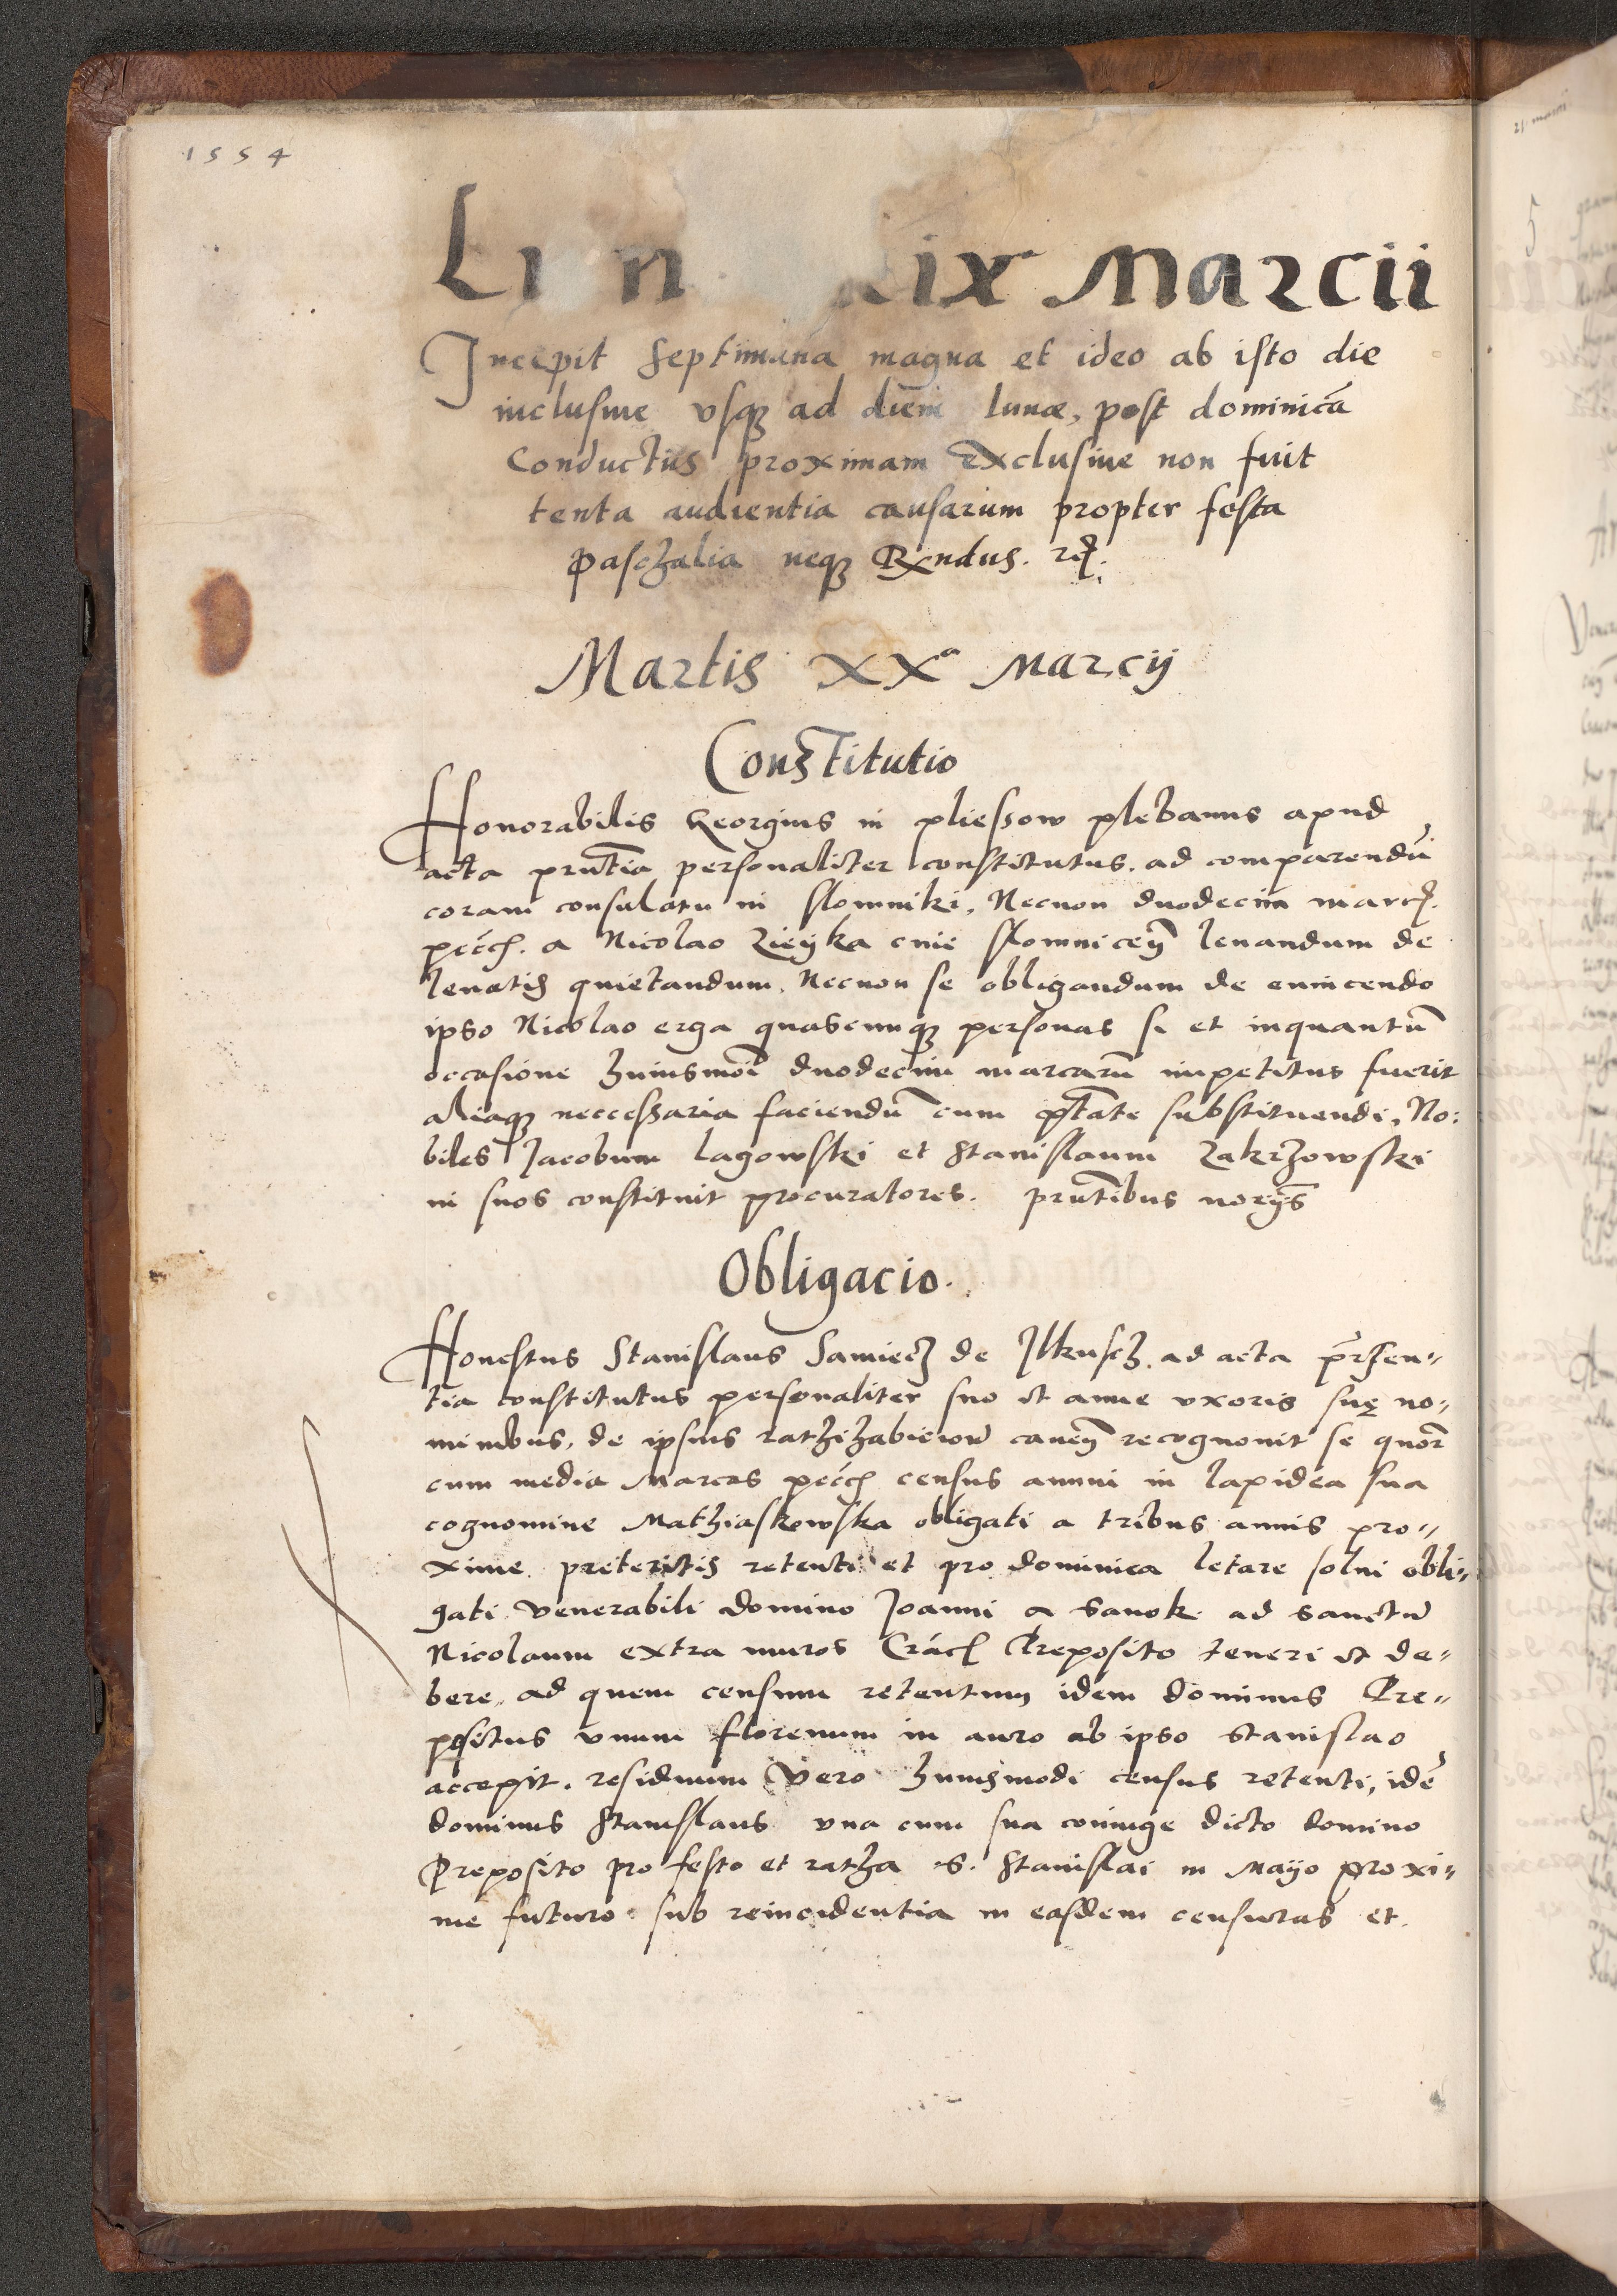 1554
Lun xix Marcii
Incepit septimana magna et ideo ab isto die
inclusiue vsq3 ad diem lunæ, post dominicā
Conductus proximam exclusiue non fuit
tenta audientia causarum propter festa
paschalia neq3 Rndus.
Martis XXa Marcij
Constitutio
Honorabilis Georgius in pliessow plebanus apud
acta prntia personaliter constitutus. ad comparendū
coram consulatu in slomniki, Necnon duodecim marc.
pecc. a Nicolao Zieyka ciue slomnicen leuandum de
leuatis quietandum. Necnon se obligandum de euincendo
ipso Nicolao erga quascunq3 personas si et inquantū
occasione huiusmoi duodecim marcarū impetitus fuerit
aliaq3 neccessaria faciendū cum ptate substituendi, No:
biles Jacobum Lagowski et Stanislaum Zakrzowski
in suos constituit procuratores. prntibus norijs
Obligacio.
Honestus Stanislaus Samiecz de Ilkusch. ad acta prsen-
tia constitutus personaliter suo et anne vxoris suę no-
minibus, de ipsius rathihabicioē cauen recognouit se quor
cum media Marcas pecc census annui in lapidea sua
cognomine Mathiaskowska obligati a tribus annis pro-
xime preteritis retenti et pro dominica letare solui obli-
gati venerabili domino Joanni a Sanok ad sanctū
Nicolaum extra muros Crac Preposito teneri et de-
bere, ad quem censum retentum idem dominus Pre-
positus vnum florenum in auro ab ipso Stanislao
accepit. residuum vero huiusmodi census retenti, idē
dominus Stanislaus vna cum sua coniuge dicto domino
Preposito pro festo et ratha S. Stanislai in Mayo proxi-
me futuro sub reincidentia in easdem censuras et